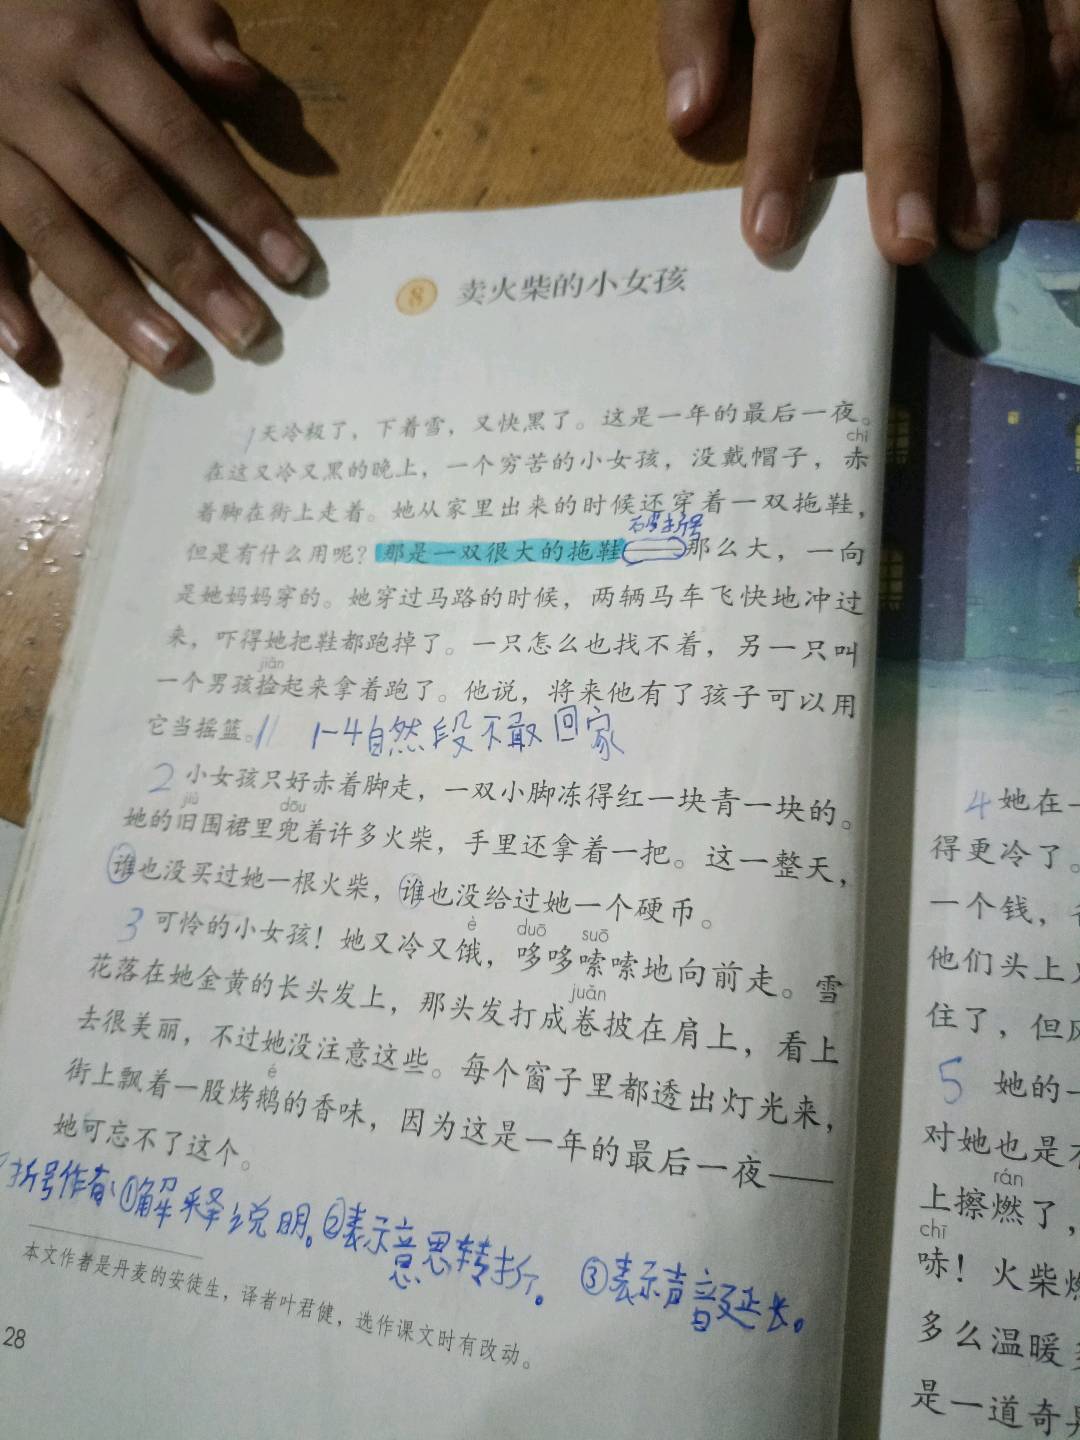 8 卖火柴的小女孩
1天冷极了，下着雪，又快黑了。这是一年的最后一夜。
chì
在这又冷又黑的晚上，一个穷苦的小女孩，没戴帽子，赤
着脚在街上走着。她从家里出来的时候还穿着一双拖鞋，
折号
但是有什么用呢？那是一双很大的拖鞋——那么大，一向
是她妈妈穿的。她穿过马路的时候，两辆马车飞快地冲过
来，吓得她把鞋都跑掉了。一只怎么也找不着，另一只叫
jiǎn
一个男孩捡起来拿着跑了。他说，将来他有了孩子可以用
它当摇篮。// 1-4自然段不敢回家
2 小女孩只好赤着脚走，一双小脚冻得红一块青一块的。
jiù dōu
她的旧围裙里兜着许多火柴，手里还拿着一把。这一整天，
谁也没买过她一根火柴，谁也没给过她一个硬币。
3 可怜的小女孩！她又冷又饿，哆哆嗦嗦地向前走。雪
è duō suō
花落在她金黄的长头发上，那头发打成卷披在肩上，看上
juǎn
去很美丽，不过她没注意这些。每个窗子里都透出灯光来，
é
街上飘着一股烤鹅的香味，因为这是一年的最后一夜——
她可忘不了这个。
折号作者：①解释说明。②表示意思转折。 ③表示声音延长。
本文作者是丹麦的安徒生，译者叶君健，选作课文时有改动。
28
4 她在一
得更冷了。
一个钱，
他们头上
住了，但风
5 她的一
对她也是
rán
上擦燃了，
chī
哧！火柴燃
多么温暖
是一道奇异